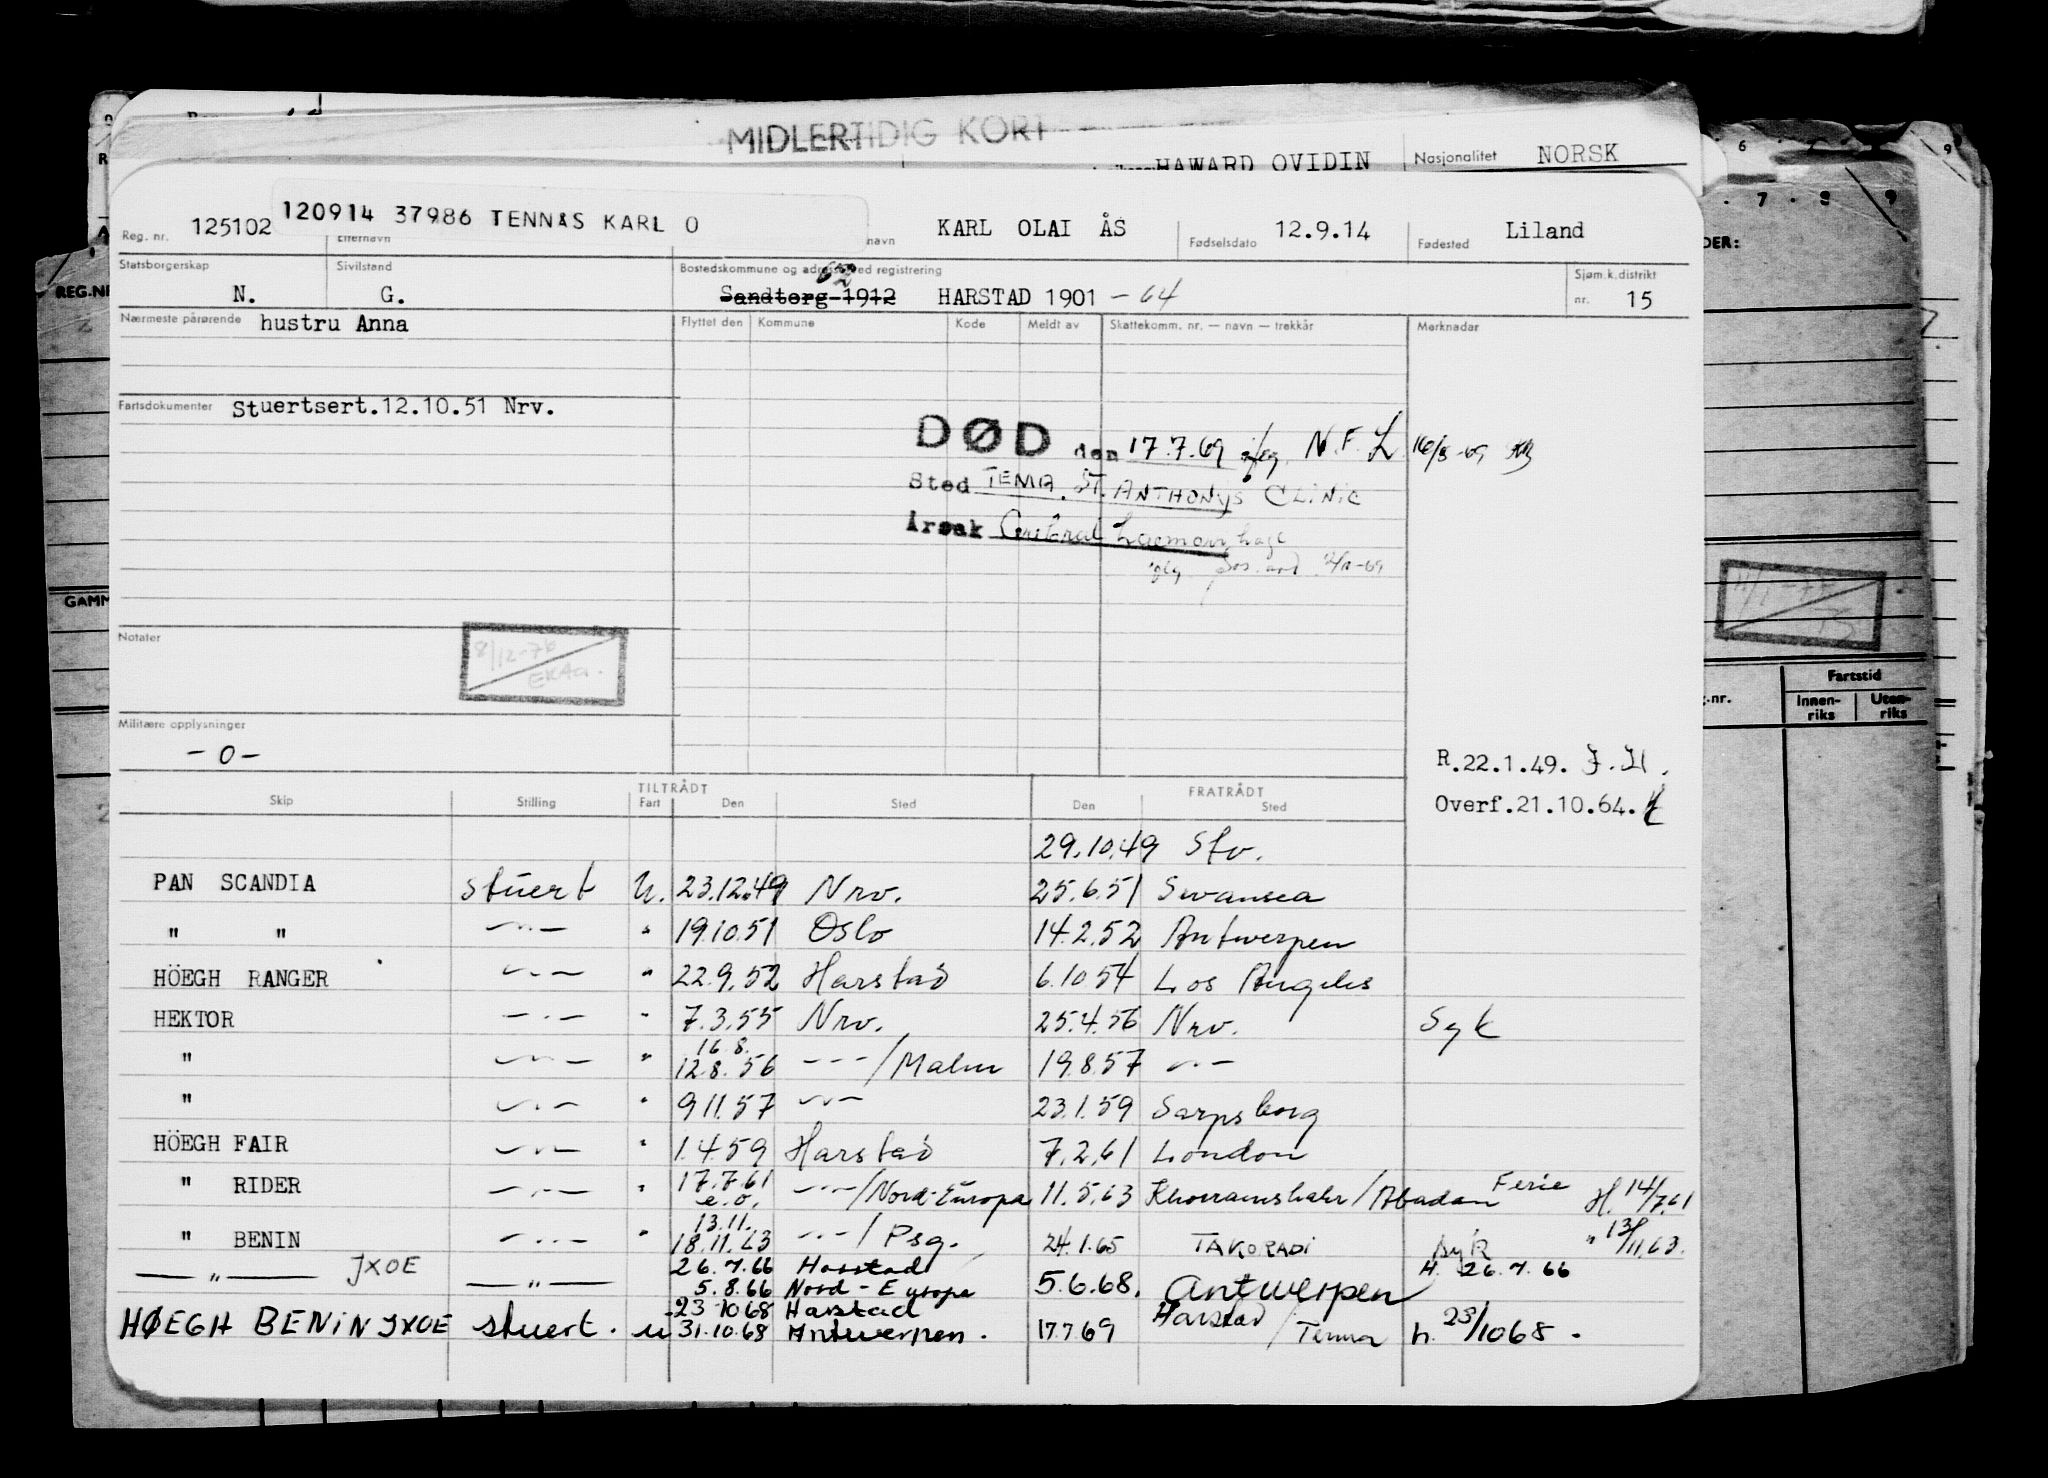 MIDLERTIDIG KORT
HAWARD OVIDIN Nasjonalitet NORSK
Reg. nr. 125102 120914 37986 TENNÅS KARL O Etternavn navn KARL OLAI ÅS Fødselsdato 12.9.14 Fødested Liland
Statsborgerskap N. Sivilstand G. Bostedskommune og adresse ved registrering Sandtorg-1912 62 HARSTAD 1901 - 64 Sjøm.k.distrikt nr. 15
Nærmeste pårørende hustru Anna Flyttet den Kommune Kode Meldt av Skattekomm. nr. — navn — trekkår Merknader
Fartsdokumenter Stuertsert.12.10.51 Nrv.
DØD den 17.7.69 iflg. N.F.L 16/8-69
Sted TEMA. ST. ANTHONYS CLINIC
Årsak Cerebral haemorrhage
iflg.
Notater
8/12-76
Militære opplysninger
-0-
R.22.1.49.
Overf.21.10.64.
TILTRÅDT FRATRÅDT
Skip Stilling Fart Den Sted Den Sted
29.10.49 Stv.
PAN SCANDIA stuert U. 23.12.49 Nrv. 25.6.51 Swansea
" " —"— " 19.10.51 Oslo 14.2.52 Antwerpen
HÖEGH RANGER —"— " 22.9.52 Harstad 6.10.54 Los Angeles
HEKTOR —"— " 7.3.55 Nrv. 25.4.56 Nrv. Syk
" —"— " 16.8. 12.8.56 —"—/Malm 19.8.57 —"—
" —"— " 9.11.57 —"— 23.1.59 Sarpsborg
HÖEGH FAIR —"— " 1.4.59 Harstad 7.2.61 London
" RIDER —"— " 17.7.61 e.o. —"—/Nord-Europa 11.5.63 Khorramshahr/Abadan Ferie H. 14/7.61
" BENIN —"— " 13.11. 18.11.63 —"—/Psg. 24.1.65 TAKORADI syk " 13/11.63.
—"— JXOE —"— 26.7.66 Harstad H. 26.7.66
5.8.66 Nord-Europa 5.6.68. Antwerpen
HØEGH BENIN JXOE stuert. u 23.10.68 Harstad Harstad
31.10.68 Antwerpen. 17.7.69 / Tema h. 23/10 68.
REG.NR
GAMM
DER:
6 7 9
7 8 9
Fartstid
.nr. Innen- riks Uten- riks